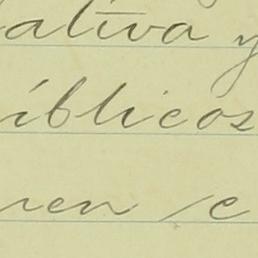 ativa y
íblicos
ren e